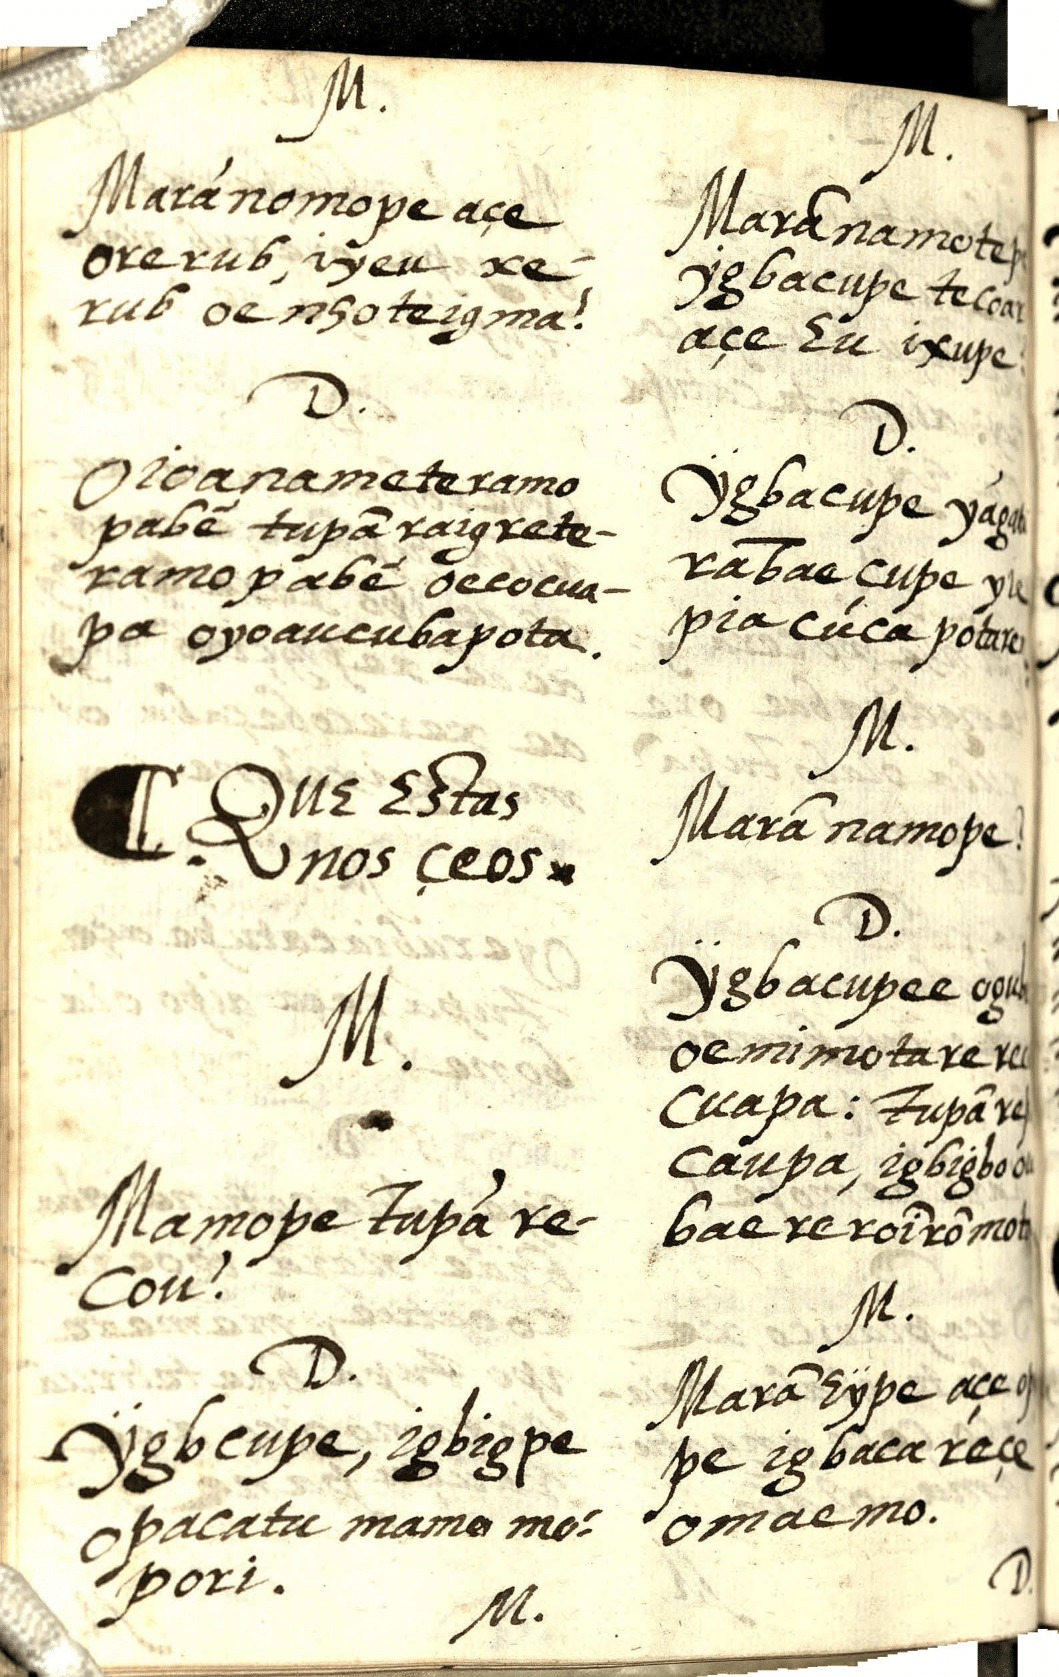 M.
Maránomope açe
ore rub, iyeu xe-
rub oe nhoteigma?
D.
Oioanameteramo
pabẽ tupã raigrete-
ramo pabẽ oecocua-
pa oyoaucubapota.
¶. QUE Estas
nos çeos
M.
Mamope Tupã re-
cou?
D.
Ÿgbcupe, igbigpe
opacatu mamo mo-
pori.
M.
M.
Marãnamotepe
ÿgbacupe tecoar
açe Eu ixupe?
D.
Ÿgbacupe
rãbae çupe
pia cúca
M.
Marã namope?
D.
Ÿgbacupee
oemimotare
cuapa: Tupã
caupa, igbigbo
bae re
M.
Marã Eÿpe açe
pe igbaca reçe
omaemo.
D.